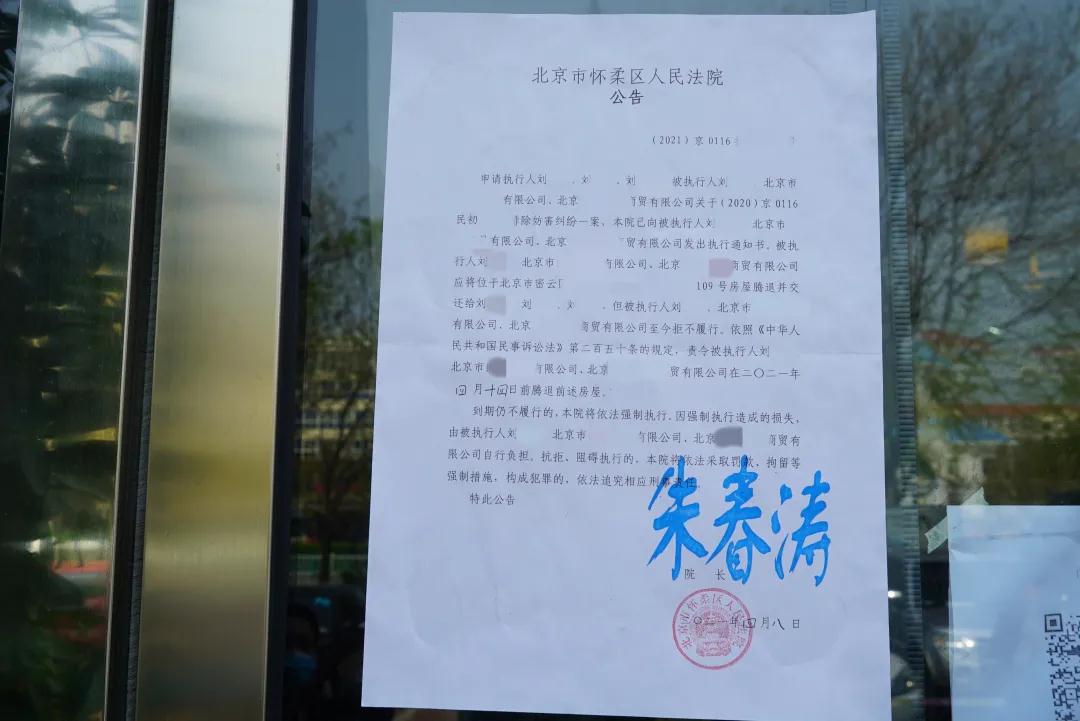 北京市怀柔区人民法院
公告
（2021）京0116
申请执行人刘 、刘 、刘 被执行人刘 北京市
有限公司、北京 商贸有限公司关于（2020）京0116
民初 排除妨害纠纷一案，本院已向被执行人刘 北京市
有限公司、北京 贸有限公司发出执行通知书。被执
行人刘 北京市 有限公司、北京 商贸有限公司
应将位于北京市密云 109号房屋腾退并交
还给刘 刘 、刘 ，但被执行人刘 、北京市
有限公司、北京 商贸有限公司至今拒不履行。依照《中华人
民共和国民事诉讼法》第二百五十条的规定，责令被执行人刘
北京市 有限公司、北京 贸有限公司在二〇二一年
四月十四日前腾退前述房屋。
到期仍不履行的，本院将依法强制执行。因强制执行造成的损失，
由被执行人刘 北京市 有限公司、北京 商贸有
限公司自行负担。抗拒、阻碍执行的，本院将依法采取罚款、拘留等
强制措施，构成犯罪的，依法追究相应刑事责任。
特此公告
朱春涛
院 长
北京市怀柔区人民法院
〇二一年四月八日